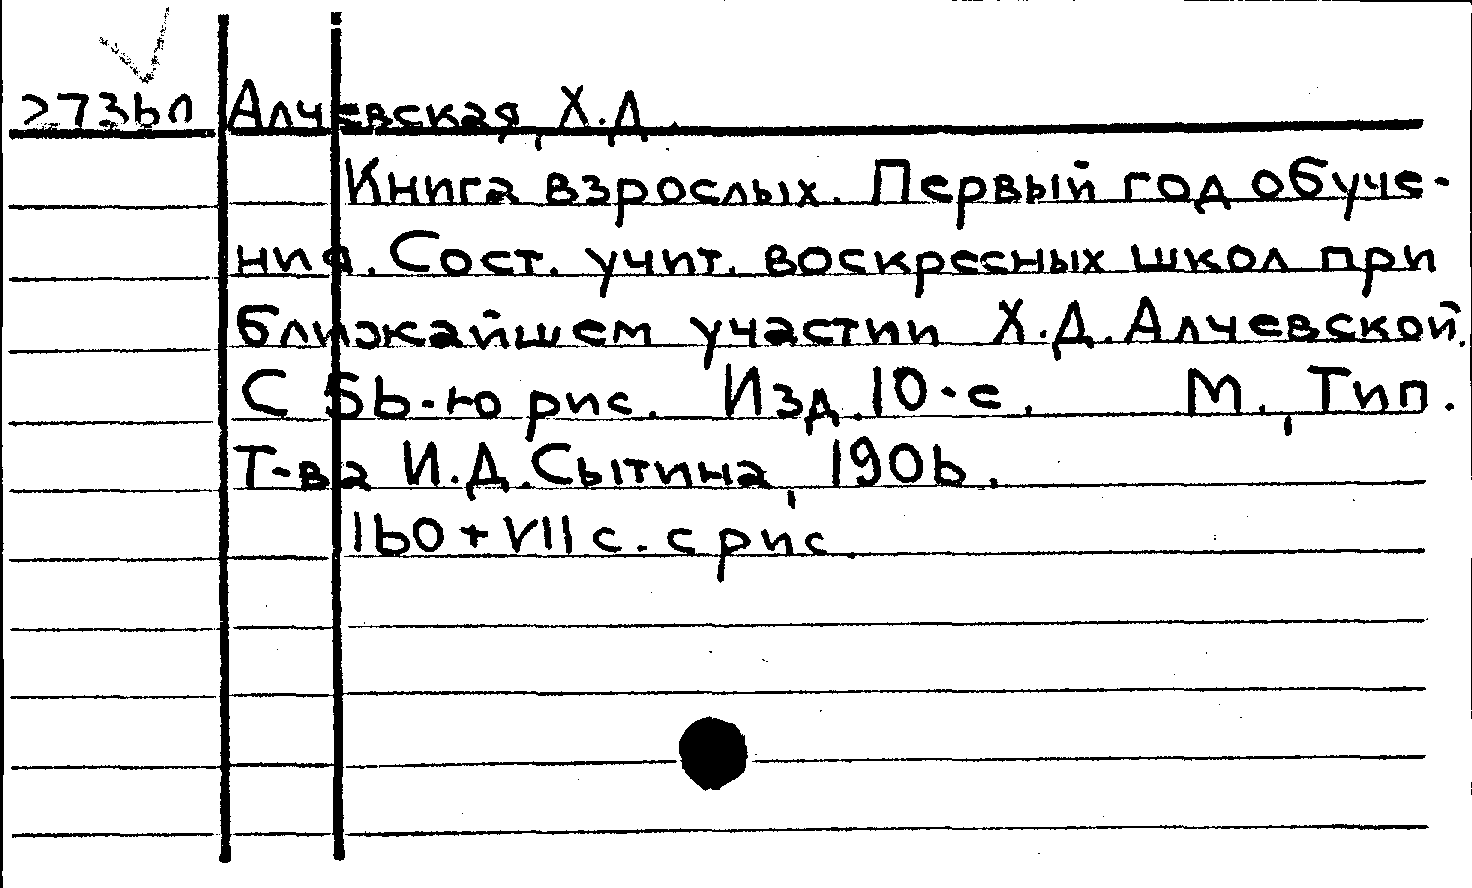 2736л Алчевская, Х.Д.
Книга взрослых. Первый год обуче-
ния. Сост. учит. воскресных школ при
ближайшем участии Х.Д. Алчевской.
С 56-ю рис. Изд. 10-е. М., Тип.
Т-ва И.Д. Сытина, 1906.
160 + VII с. с рис.